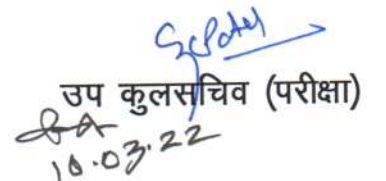 उप कुलसचिव (परीक्षा)
10.03.22